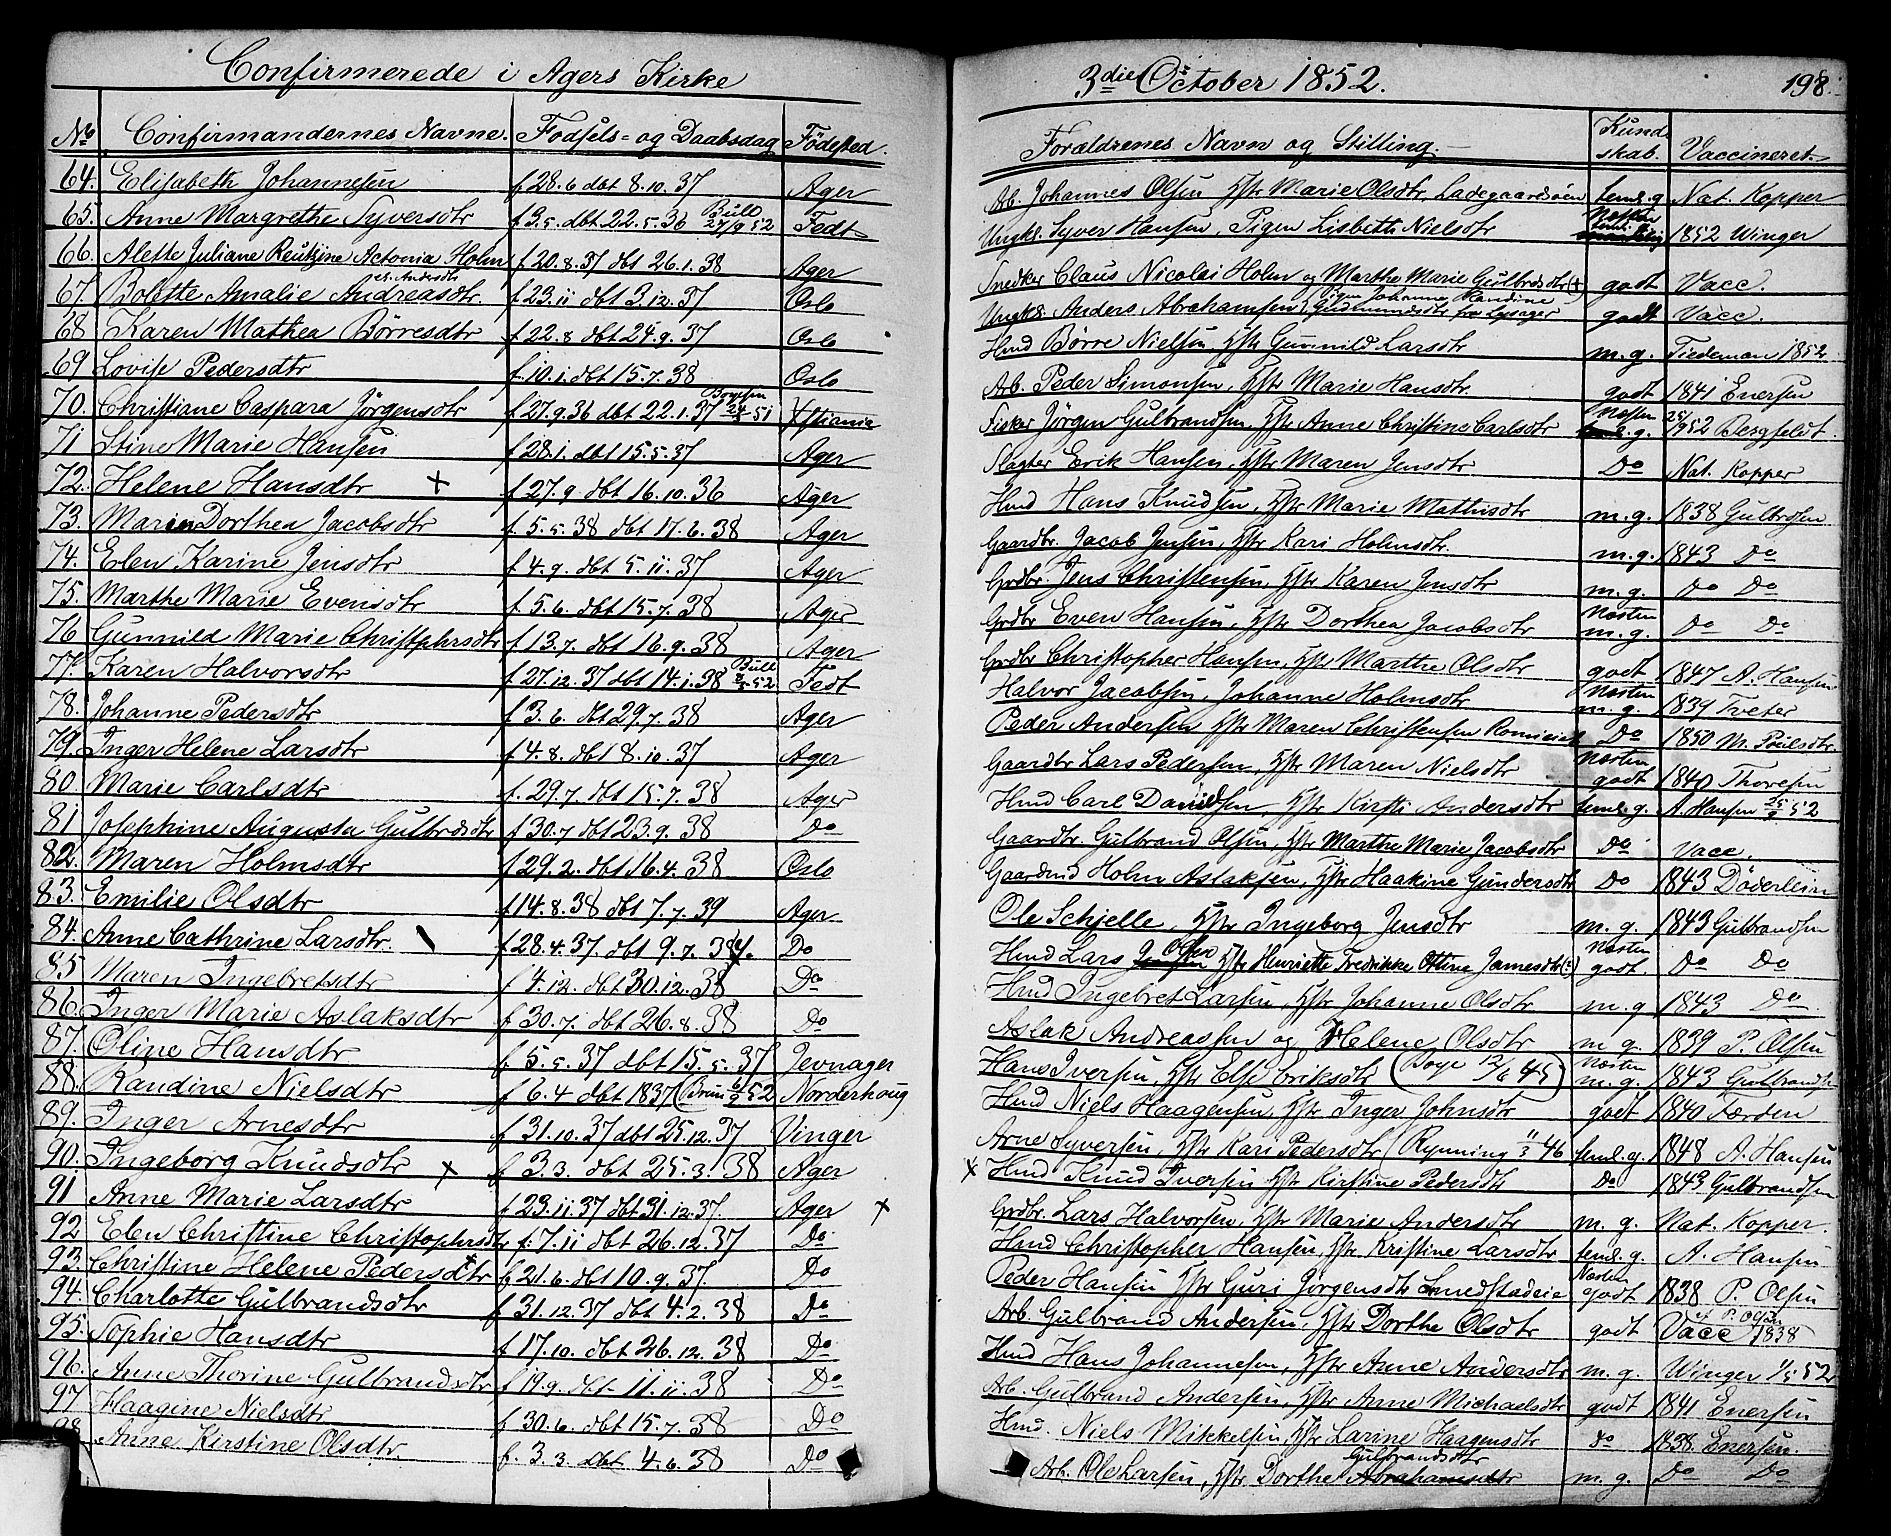 Confirmerede i Agers Kirke
No Confirmandernes Navne. Fødsels- og Daabsdag Fødested.
64. Elisabeth Johannesen f 28.6 dbt 8.10.37 Ager
65. Anne Margrethe Syversdtr f 3.5. dbt 22.5.36 Bull 27/9 52 Fedt
66. Alette Juliane Actonia Holm f 20.8.37 dbt 26.1.38 Ager
67. Bolette Amalie Andreasdtr. f 23.11 dbt 3.12.37 Oslo
68 Karen Mathea Børresdtr f 22.8 dbt 24.9.37 Oslo
69 Lovise Pedersdtr f. 10.1. dbt 15.7.38 Oslo
70. Christiane Caspara Jörgensdtr f 27.9.36 dbt 22.1.37 Xstiania
71 Stine Marie Hansen f 28.1. dbt 15.5.37 Ager
72. Helene Hansdtr + f 27.9 dbt 16.10.36 Ager
73. Maren Dorthea Jacobsdtr f. 5.5.38 dbt 17.6.38 Ager
74. Elen Karine Jensdtr f 4.9. dbt 5.11.37 Ager
75. Marthe Marie Evensdtr f. 5.6. dbt 15.7.38 Ager
76 Gunnild Marie Christphersdtr f 13.7. dbt 16.9.38 Ager
77. Karen Halvorsdtr f 27.12.37 dbt 14.1.38 Bull Fedt
78. Johanne Pedersdtr f 3.6. dbt 29.7.38 Ager
79. Inger Helene Larsdtr f 4.8. dbt 8.10.37 Ager
80. Marie Carlsdtr f. 29.7. dbt 15.7.38 Ager
81 Josephine Augusta Gulbrdsdtr f 30.7 dbt 23.9.38 Do
82. Maren Holmsdtr f 29.2. dbt 16.4.38 Oslo
83. Emilie Olsdtr f 14.8.38 dbt 7.7.39 Ager
84. Anne Cathrine Larsdtr. f 28.4.37. dbt 9.7.38 Do
85 Maren Ingebretsdtr f 4.12. dbt 30.12.38 Do
86. Inger Marie Aslaksdtr f 30.7. dbt 26.8.38 Do
87. Oline Hansdtr f 5.5.37 dbt 15.5.37 Jevnager
88. Randine Nielsdtr f 6.4 dbt 1837 (Brun 52 Norderhoug
89. Inger Arnesdtr f 31.10.37 dbt 25.12.37 Vinger
90. Ingeborg Knudsdtr + f 3.3. dbt 25.3.38 Ager
91 Anne Marie Larsdtr f 23.11.37 dbt 31.12.37. Ager +
92 Elen Christine Christophrsdtr f. 7.11 dbt 26.12.37 Do
93. Christine Helene Pedersdtr f 21.6. dbt 10.9.37. Do
94. Charlotte Gulbrandsdtr f 31.12.37 dbt 4.2.38 Do
95. Sophie Hansdtr f 17.10. dbt 26.12.38 Do
96. Anne Thorine Gulbrandsdtr f 19.9. dbt 11.11.38 Do
97 Haagine Nielsdtr f 30.6. dbt 15.7.38 Do
98 Anne Kirstine Olsdtr. f. 3.3. dbt 4.6.38 Do
3die October 1852. 198.
Forældrenes Navn og Stilling. Kundskab. Vaccineret.
Arb. Johannes Olsen, Hstr Marie Olsdtr, Ladegaardsøen teml.g Nat. Kopper
Ungkl. Syver Hansen, Pigen Lisbeth Nielsdtr Næsten 1852 Winger
Snedker Claus Nicolai Holm og Marthe Marie Gulbrdsdtr (+) godt Vacc.
Ungkl. Anders Abrahamsen, Pigen Johanne Randine Gudmundsdtr fra Lysager godt Vacc.
Hmd Børre Nielsen, Hstr Gunnild Larsdtr m.g. Tiedeman 1852
Arb. Peder Simonsen, Hstr Marie Hansdtr. godt 1841 Enersen
Fisker Jörgen Gulbrandsen, Hstr Anne Christine Carlsdtr Næsten g. 1852 Bergfeldt.
Slagter Erik Hansen, Hstr Maren Jensdtr Do Nat. Kopper
Hmd Hans Knudsen, Hstr Marie Mathisdtr m.g. 1838 Gulbrdsen
Gaardbr. Jacob Jensen, Hstr Kari Holmsdtr. m.g. 1843 Do
Grdbr. Jens Christensen, Hstr Karen Jensdtr m.g. Do Do
Grdbr Even Hansen, Hstr Dorthea Jacobsdtr Næsten m.g. Do Do
Grdbr Christopher Hansen, Hstr Marthe Olsdtr godt 1847 A. Hansen
Halvor Jacobsen, Johanne Holmsdtr Næsten m.g. 1839 Tveter
Peder Andersen Hstr Maren Christensen Do 1850 M. Poilsdtr.
Gaardbr Lars Pedersen, Hstr Maren Nielsdtr Næsten godt 1840 Thoresen
Hmd Carl Davidsen, Hstr Kirsti Andersdtr teml.g. A. Hansen 52
Gaardbr. Gulbrand Olsen, Hstr Marthe Marie Jacobsdtr Do Vacc.
Gaardmd Holm Aslaksen, Hstr Haakine Gundersdtr Do 1843 Döderlein
Ole Schjelle, Hstr Ingeborg Jensdtr m.g. 1843 Gulbrandsen
Hmd Lars Olsen Hstr Henriette Fredrikke Ottine Jamesdtr Næsten godt Do Do
Hmd Ingebret Larsen, Hstr Johanne Olsdtr m.g 1843 Do
Aslak Andreassen og Helene Olsdtr m g. 1839 P. Olsen
Hans Iversen, Hstr Else Eriksdtr (Boye 12/6 45) Næsten m.g. 1843 Gulbrands
Hmd Niels Haagensen, Hstr Inger Johnsdtr godt 1840 Færden
Arne Syversen, Hstr Kari Pedersdtr (Rynning 11/3 46 teml.g. 1848 A. Hansen
+ Hmd Knud Iversen Hstr Kirstine Pedersdtr Do 1843 Gulbrandsen
Grdbr. Lars Halvorsen, Hstr Marie Andersdtr m.g. Nat. Kopper.
Hmd Christopher Hansen, Hstr Kristine Larsdtr teml.g. A. Hansen
Peder Hansen Hstr Guri Jørgensdtr Næsten godt 1838 P. Olsen
Arb. Gulbrand Andersen, Hstr Dorthe Olsdtr godt Vacc af P. Olsen 1838
Hmd Hans Johannesen, Hstr Anne Andersdtr m.g. Winger 1/5 52
Arb. Gulbrand Andersen, Hstr Anne Michaelsdtr godt 1841 Enersen
Hmd. Niels Mikkelsen, Hstr Larine Haagensdtr Do 1838. Enersen.
Arb. Ole Larsen, Hstr Dorthe Gulbrandsdtr Abrahamsdtr m.g. Do Do